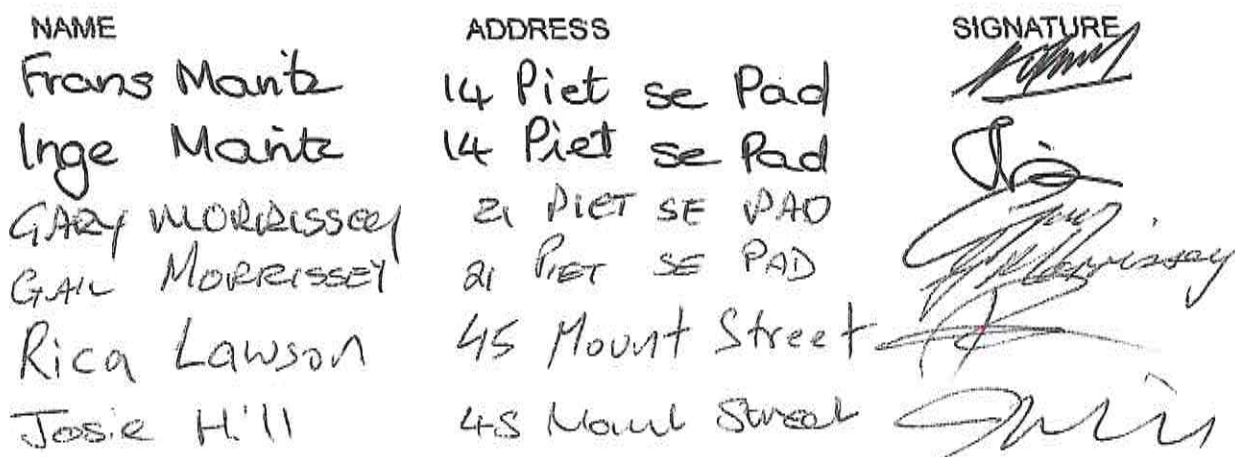 NAME ADDRESS SIGNATURE
Frans Maritz 14 Piet se Pad
Inge Maritz 14 Piet se Pad
GARY MORRISSEY 21 PIET SE PAD
GAIL MORRISSEY 21 PIET SE PAD Morrissey
Rica Lawson 45 Mount Street
Josie Hill 45 Mount Street